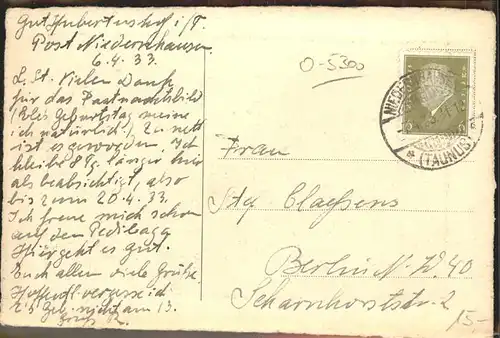 Gut Hubertushof i/T.
Post Niedernhausen
6.4.33.
L. St. Vielen Dank
für das Fastnachtsbild
Geburtstag meine
ich natürlich! Zu nett
ist es geworden. Ich
bleibe 8 Tg. länger hier
als beabsichtigt, also
bis zum 20.4.33.
Ich freue mich schon
auf den
Hier geht es gut.
Euch allen viele Grüße.
nicht am 13.
O-5300
(TAUNUS)
Frau
Stg. Claessens
Berlin N.W. 40
Scharnhorststr. 2
15-